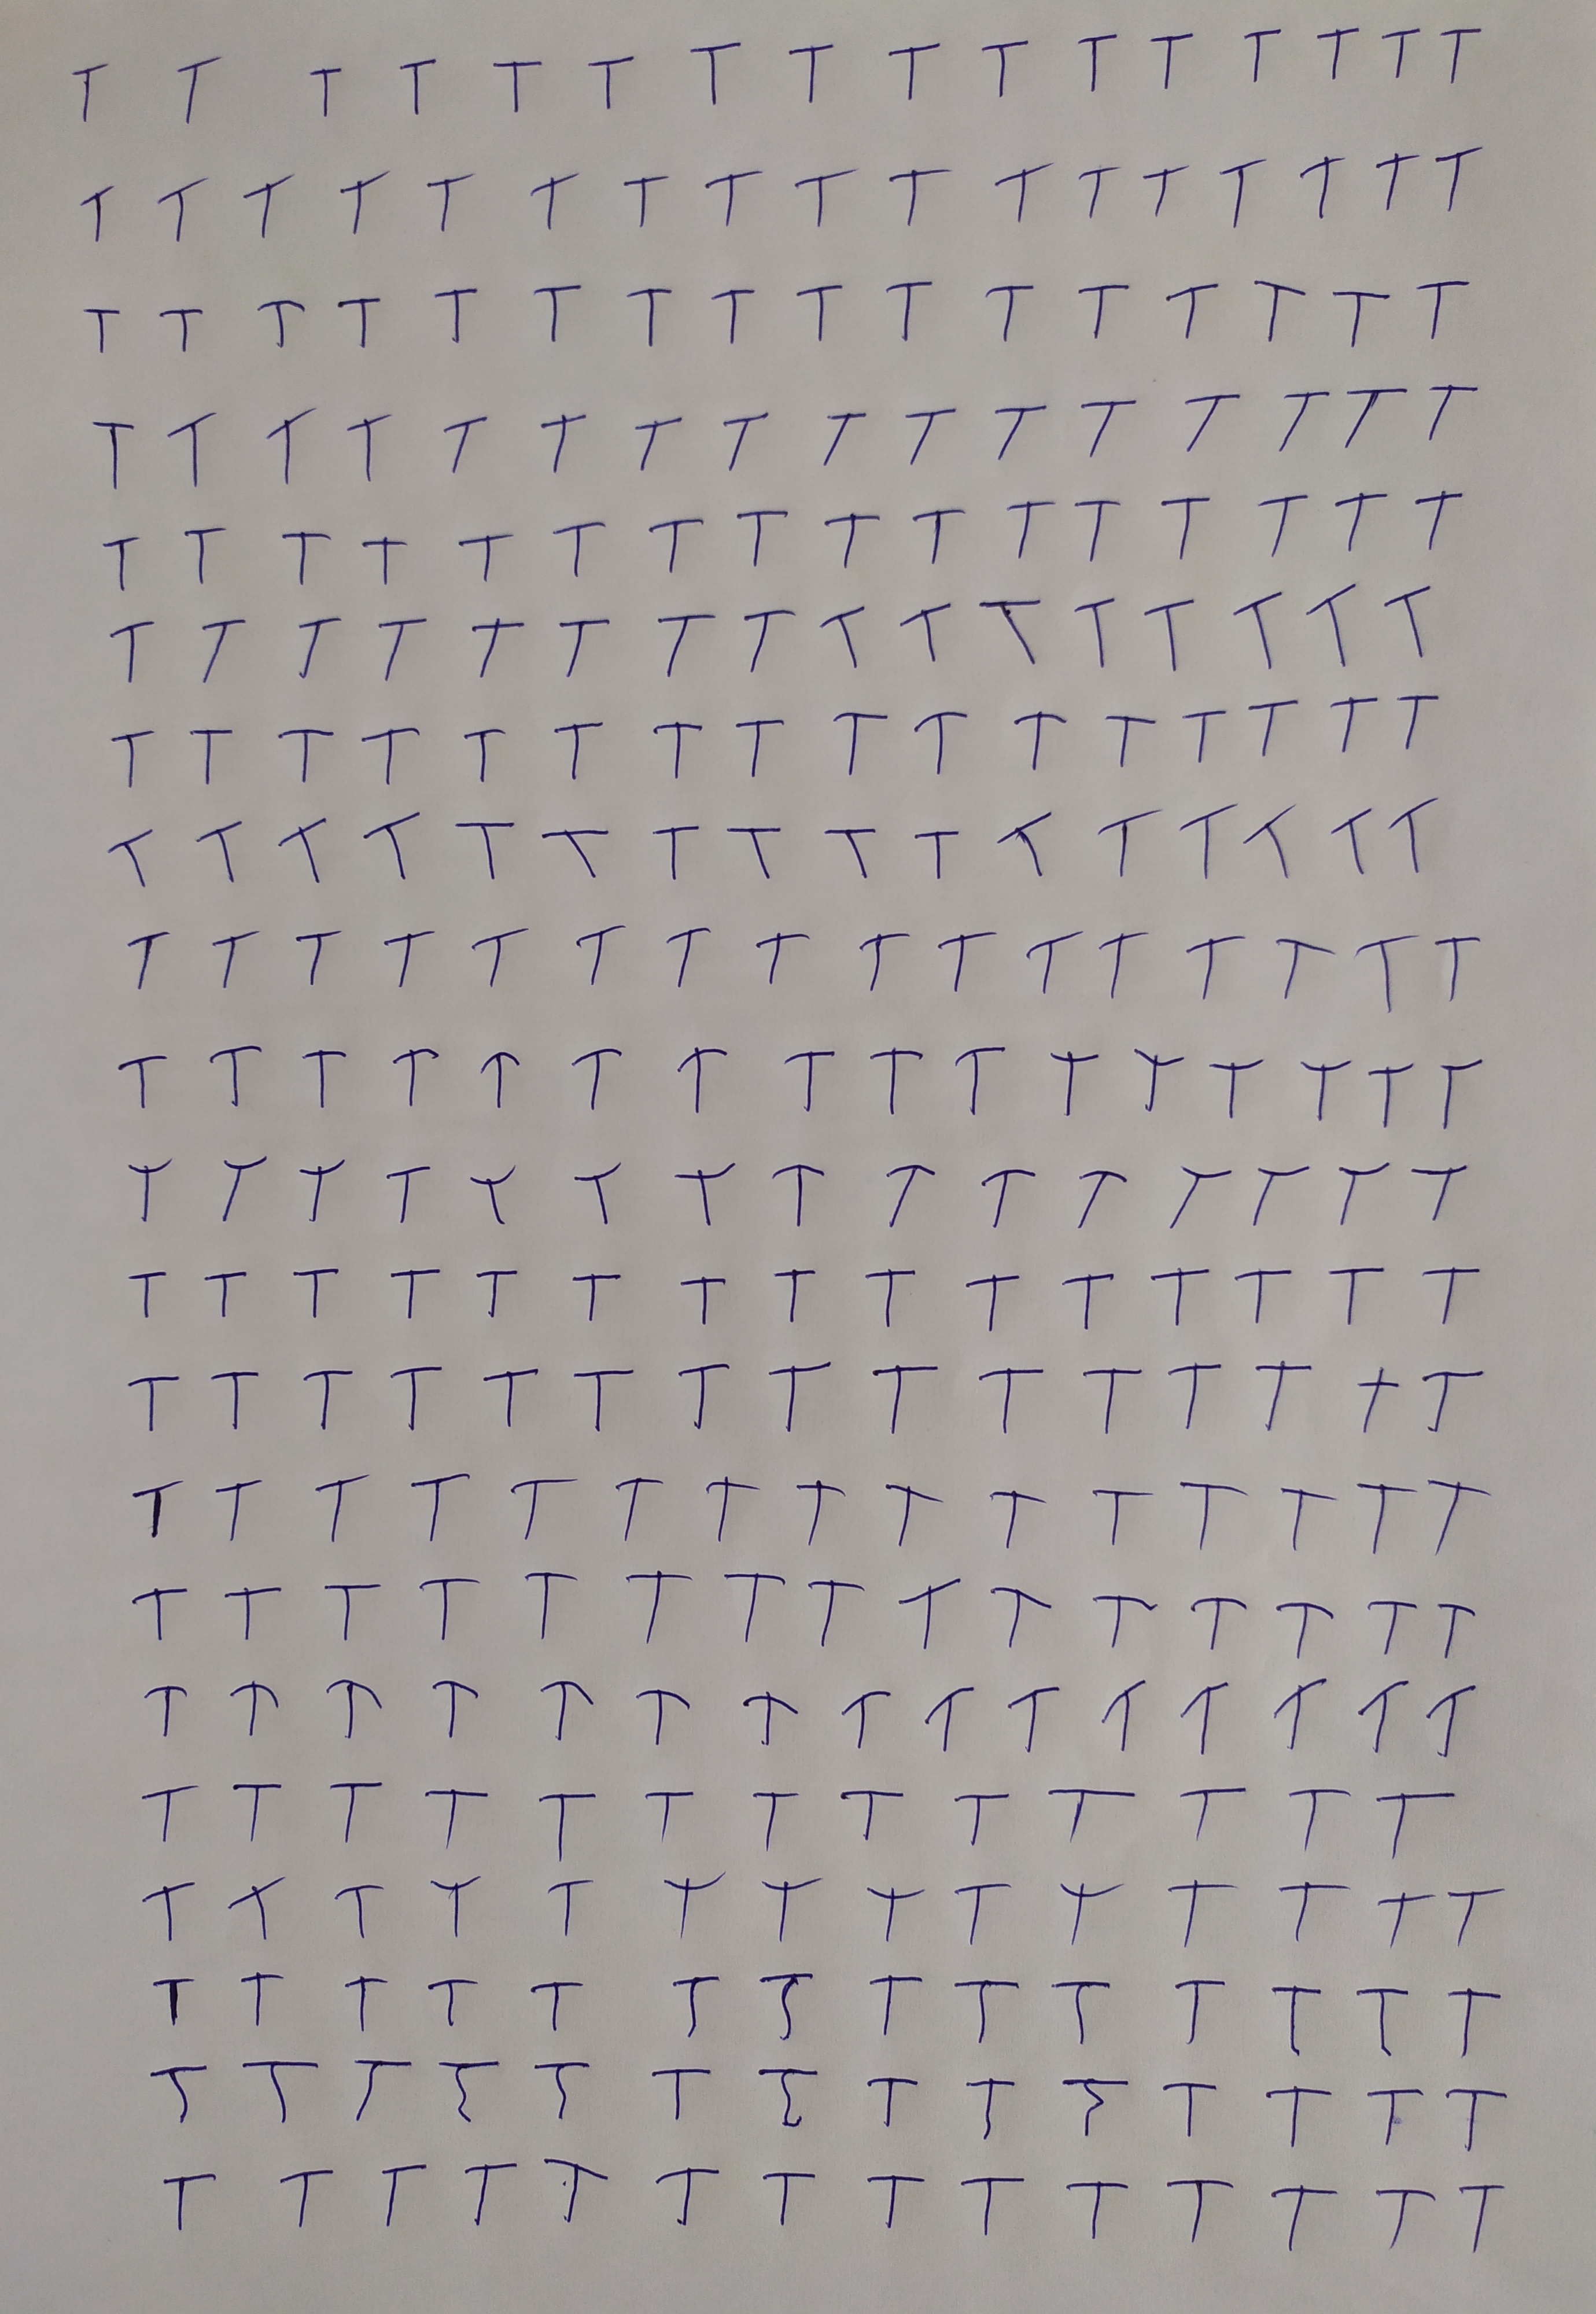 T T T T T T T T T T T T T T T T
T T T T T T T T T T T T T T T T T
T T T T T T T T T T T T T T T T
T T T T T T T T T T T T T T T T
T T T T T T T T T T T T T T T T
T T T T T T T T T T T T T T T T
T T T T T T T T T T T T T T T T
T T T T T T T T T T T T T T T T
T T T T T T T T T T T T T T T T
T T T T T T T T T T T T T T T T
T T T T T T T T T T T T T T T
T T T T T T T T T T T T T T T
T T T T T T T T T T T T T T T
T T T T T T T T T T T T T T T
T T T T T T T T T T T T T T T
T T T T T T T T T T T T T T T
T T T T T T T T T T T T T
T T T T T T T T T T T T T T
T T T T T T T T T T T T T T
T T T T T T T T T T T T T T
T T T T T T T T T T T T T T